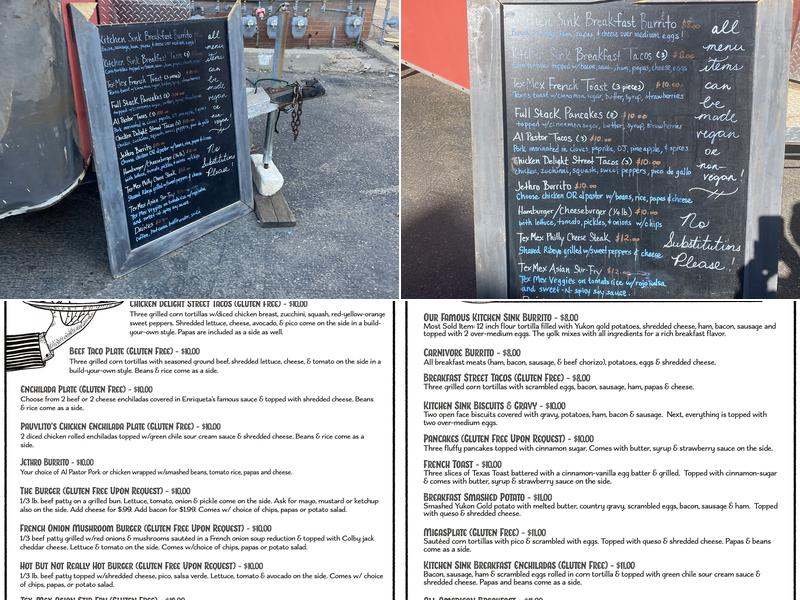 Kitchen Sink Breakfast Burrito
Kitchen Sink Breakfast Tacos (3)
Tex Mex French Toast
Full Stack Pancakes (2)
Al Pastor Tacos (3)
Chicken Delight Street Tacos (3)
Jethro Burrito
Hamburger/Cheeseburger (¼ lb)
Tex Mex Philly Cheese Steak
Tex Mex Asian Stir-Fry
Drinks
all
menu
items
can
be
made
vegan
or
non-
vegan!
No
Substitutions
Please!
Kitchen Sink Breakfast Burrito $8.00
Kitchen Sink Breakfast Tacos (3) $8.00
Tex Mex French Toast (3 pieces) $10.00
Texas toast w/cinnamon sugar, butter, syrup, strawberries
Full Stack Pancakes (2) $10.00
topped w/cinnamon sugar, butter, syrup, strawberries
Al Pastor Tacos (3) $10.00
Pork marinated in cloves, paprika, OJ, pineapple, & spices
Chicken Delight Street Tacos (3) $10.00
chicken, zucchini, squash, sweet peppers, pico de gallo
Jethro Burrito $10.00
Choose chicken OR al pastor w/beans, rice, papas & cheese
Hamburger/Cheeseburger (¼ lb) $10.00
with lettuce, tomato, pickles, & onions w/chips
Tex Mex Philly Cheese Steak $12.00
Shaved Ribeye grilled w/sweet peppers & cheese
Tex Mex Asian Stir-Fry $12.00
Tex Mex Veggies on tomato rice w/rojo salsa
and sweet-n-spicy soy sauce.
all
menu
items
can
be
made
vegan
or
non-
vegan!
No
Substitutions
Please!
Chicken Delight Street Tacos (Gluten Free) - $10.00
Three grilled corn tortillas w/diced chicken breast, zucchini, squash, red-yellow-orange
sweet peppers. Shredded lettuce, cheese, avocado, & pico come on the side in a build-
your-own style. Papas are included as a side as well.
Beef Taco Plate (Gluten Free) - $10.00
Three grilled corn tortillas with seasoned ground beef, shredded lettuce, cheese, & tomato on the side in a
build-your-own style. Beans & rice come as a side.
Enchilada Plate (Gluten Free) - $10.00
Choose from 2 beef or 2 cheese enchiladas covered in Enriqueta's famous sauce & topped with shredded cheese. Beans
& rice come as a side.
Pauvlito's Chicken Enchilada Plate (Gluten Free) - $10.00
2 diced chicken rolled enchiladas topped w/green chile sour cream sauce & shredded cheese. Beans & rice come as a
side.
Jethro Burrito - $10.00
Your choice of Al Pastor Pork or chicken wrapped w/smashed beans, tomato rice, papas and cheese.
The Burger (Gluten Free Upon Request) - $10.00
1/3 lb. beef patty on a grilled bun. Lettuce, tomato, onion & pickle come on the side. Ask for mayo, mustard or ketchup
also on the side. Add cheese for $.99. Add bacon for $1.99. Comes w/ choice of chips, papas or potato salad.
French Onion Mushroom Burger (Gluten Free Upon Request) - $10.00
1/3 beef patty grilled w/red onions & mushrooms sautéed in a French onion soup reduction & topped with Colby jack
cheddar cheese. Lettuce & tomato on the side. Comes w/choice of chips, papas or potato salad.
Hot But Not Really Hot Burger (Gluten Free Upon Request) - $10.00
1/3 lb. beef patty topped w/shredded cheese, pico, salsa verde. Lettuce, tomato & avocado on the side. Comes w/ choice
of chips, papas, or potato salad.
Tex-Mex Asian Stir Fry (Gluten Free) - $12.00
Our Famous Kitchen Sink Burrito - $8.00
Most Sold Item- 12 inch flour tortilla filled with Yukon gold potatoes, shredded cheese, ham, bacon, sausage and
topped with 2 over-medium eggs. The yolk mixes with all ingredients for a rich breakfast flavor.
Carnivore Burrito - $8.00
All breakfast meats (ham, bacon, sausage, & beef chorizo), potatoes, eggs & shredded cheese.
Breakfast Street Tacos (Gluten Free) - $8.00
Three grilled corn tortillas with scrambled eggs, bacon, sausage, ham, papas & cheese.
Kitchen Sink Biscuits & Gravy - $10.00
Two open face biscuits covered with gravy, potatoes, ham, bacon & sausage. Next, everything is topped with
two over-medium eggs.
Pancakes (Gluten Free Upon Request) - $10.00
Three fluffy pancakes topped with cinnamon sugar. Comes with butter, syrup & strawberry sauce on the side.
French Toast - $10.00
Three slices of Texas Toast battered with a cinnamon-vanilla egg batter & grilled. Topped with cinnamon-sugar
& comes with butter, syrup & strawberry sauce on the side.
Breakfast Smashed Potato - $11.00
Smashed Yukon Gold potato with melted butter, country gravy, scrambled eggs, bacon, sausage & ham. Topped
with queso & shredded cheese.
MigasPlate (Gluten Free) - $11.00
Sautéed corn tortillas with pico & scrambled with eggs. Topped with queso & shredded cheese. Papas & beans
come as a side.
Kitchen Sink Breakfast Enchiladas (Gluten Free) - $11.00
Bacon, sausage, ham & scrambled eggs rolled in corn tortilla & topped with green chile sour cream sauce &
shredded cheese. Papas and beans come as a side.